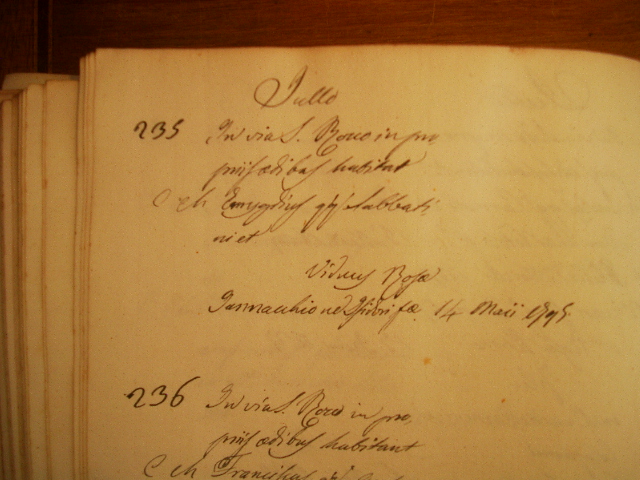 Jullo
235 In via S. Roco in pro
priis ædibus habitat
C ch Emygdius qm Sabbati
ni et
Viduus Rosæ
Jannacchione 14 Maii 1795
236 In via S. Roco in pro
priis ædibus habitant
C ch Franciscus qm